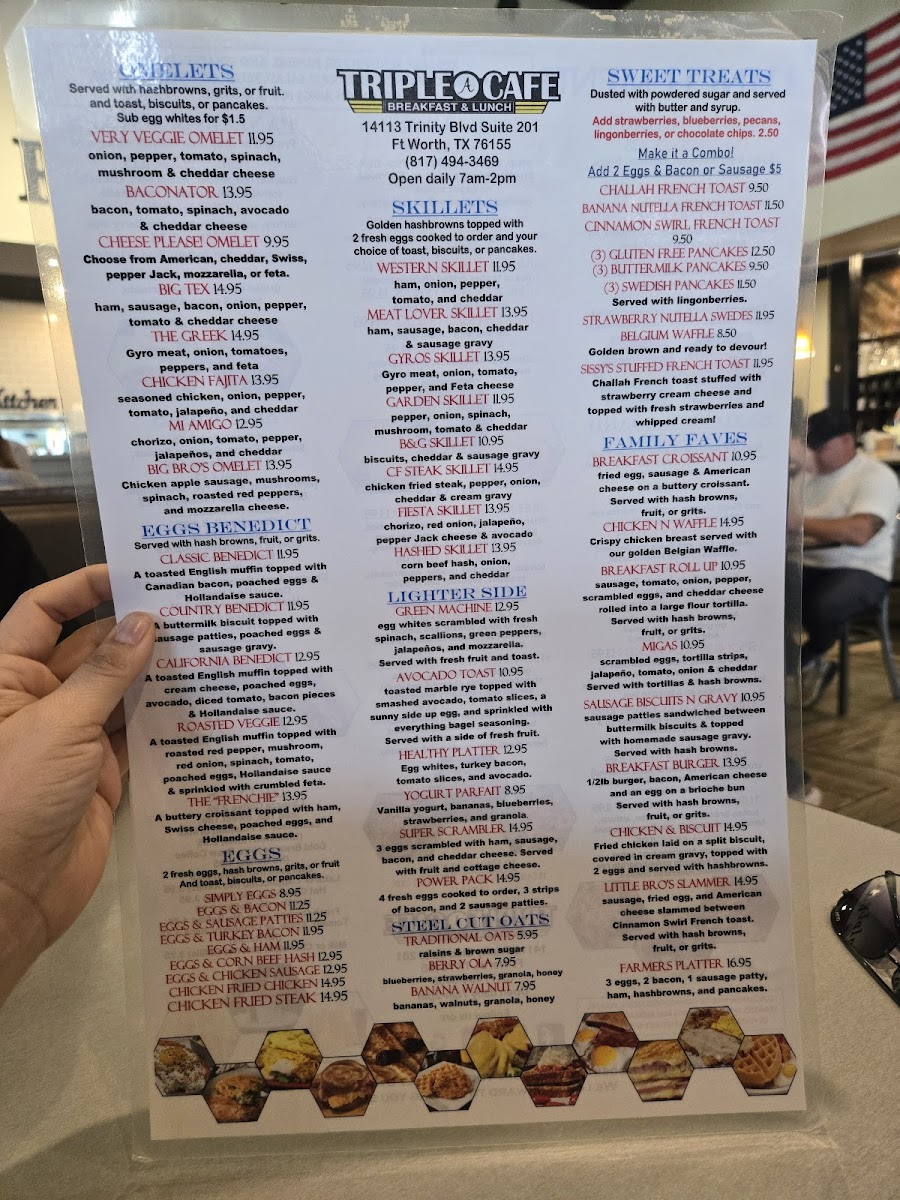 OMELETS
Served with hashbrowns, grits, or fruit.
and toast, biscuits, or pancakes.
Sub egg whites for $1.5
VERY VEGGIE OMELET 11.95
onion, pepper, tomato, spinach,
mushroom & cheddar cheese
BACONATOR 13.95
bacon, tomato, spinach, avocado
& cheddar cheese
CHEESE PLEASE! OMELET 9.95
Choose from American, cheddar, Swiss,
pepper Jack, mozzarella, or feta.
BIG TEX 14.95
ham, sausage, bacon, onion, pepper,
tomato & cheddar cheese
THE GREEK 14.95
Gyro meat, onion, tomatoes,
peppers, and feta
CHICKEN FAJITA 13.95
seasoned chicken, onion, pepper,
tomato, jalapeño, and cheddar
MI AMIGO 12.95
chorizo, onion, tomato, pepper,
jalapeños, and cheddar
BIG BRO'S OMELET 13.95
Chicken apple sausage, mushrooms,
spinach, roasted red peppers,
and mozzarella cheese.
EGGS BENEDICT
Served with hash browns, fruit, or grits.
CLASSIC BENEDICT 11.95
A toasted English muffin topped with
Canadian bacon, poached eggs &
Hollandaise sauce.
COUNTRY BENEDICT 11.95
A buttermilk biscuit topped with
sausage patties, poached eggs &
sausage gravy.
CALIFORNIA BENEDICT 12.95
A toasted English muffin topped with
cream cheese, poached eggs,
avocado, diced tomato, bacon pieces
& Hollandaise sauce.
ROASTED VEGGIE 12.95
A toasted English muffin topped with
roasted red pepper, mushroom,
red onion, spinach, tomato,
poached eggs, Hollandaise sauce
& sprinkled with crumbled feta.
THE "FRENCHIE" 13.95
A buttery croissant topped with ham,
Swiss cheese, poached eggs, and
Hollandaise sauce.
EGGS
2 fresh eggs, hash browns, grits, or fruit
And toast, biscuits, or pancakes.
SIMPLY EGGS 8.95
EGGS & BACON 11.25
EGGS & SAUSAGE PATTIES 11.25
EGGS & TURKEY BACON 11.95
EGGS & HAM 11.95
EGGS & CORN BEEF HASH 12.95
EGGS & CHICKEN SAUSAGE 12.95
CHICKEN FRIED CHICKEN 14.95
CHICKEN FRIED STEAK 14.95
TRIPLE A CAFE
BREAKFAST & LUNCH
14113 Trinity Blvd Suite 201
Ft Worth, TX 76155
(817) 494-3469
Open daily 7am-2pm
SKILLETS
Golden hashbrowns topped with
2 fresh eggs cooked to order and your
choice of toast, biscuits, or pancakes.
WESTERN SKILLET 11.95
ham, onion, pepper,
tomato, and cheddar
MEAT LOVER SKILLET 13.95
ham, sausage, bacon, cheddar
& sausage gravy
GYROS SKILLET 13.95
Gyro meat, onion, tomato,
pepper, and Feta cheese
GARDEN SKILLET 11.95
pepper, onion, spinach,
mushroom, tomato & cheddar
B&G SKILLET 10.95
biscuits, cheddar & sausage gravy
CF STEAK SKILLET 14.95
chicken fried steak, pepper, onion,
cheddar & cream gravy
FIESTA SKILLET 13.95
chorizo, red onion, jalapeño,
pepper Jack cheese & avocado
HASHED SKILLET 13.95
corn beef hash, onion,
peppers, and cheddar
LIGHTER SIDE
GREEN MACHINE 12.95
egg whites scrambled with fresh
spinach, scallions, green peppers,
jalapeños, and mozzarella.
Served with fresh fruit and toast.
AVOCADO TOAST 10.95
toasted marble rye topped with
smashed avocado, tomato slices, a
sunny side up egg, and sprinkled with
everything bagel seasoning.
Served with a side of fresh fruit.
HEALTHY PLATTER 12.95
Egg whites, turkey bacon,
tomato slices, and avocado.
YOGURT PARFAIT 8.95
Vanilla yogurt, bananas, blueberries,
strawberries, and granola.
SUPER SCRAMBLER 14.95
3 eggs scrambled with ham, sausage,
bacon, and cheddar cheese. Served
with fruit and cottage cheese.
POWER PACK 14.95
4 fresh eggs cooked to order, 3 strips
of bacon, and 2 sausage patties.
STEEL CUT OATS
TRADITIONAL OATS 5.95
raisins & brown sugar
BERRY OLA 7.95
blueberries, strawberries, granola, honey
BANANA WALNUT 7.95
bananas, walnuts, granola, honey
SWEET TREATS
Dusted with powdered sugar and served
with butter and syrup.
Add strawberries, blueberries, pecans,
lingonberries, or chocolate chips. 2.50
Make it a Combo!
Add 2 Eggs & Bacon or Sausage $5
CHALLAH FRENCH TOAST 9.50
BANANA NUTELLA FRENCH TOAST 11.50
CINNAMON SWIRL FRENCH TOAST
9.50
(3) GLUTEN FREE PANCAKES 12.50
(3) BUTTERMILK PANCAKES 9.50
(3) SWEDISH PANCAKES 11.50
Served with lingonberries.
STRAWBERRY NUTELLA SWEDES 11.95
BELGIUM WAFFLE 8.50
Golden brown and ready to devour!
SISSY'S STUFFED FRENCH TOAST 11.95
Challah French toast stuffed with
strawberry cream cheese and
topped with fresh strawberries and
whipped cream!
FAMILY FAVES
BREAKFAST CROISSANT 10.95
fried egg, sausage & American
cheese on a buttery croissant.
Served with hash browns,
fruit, or grits.
CHICKEN N WAFFLE 14.95
Crispy chicken breast served with
our golden Belgian Waffle.
BREAKFAST ROLL UP 10.95
sausage, tomato, onion, pepper,
scrambled eggs, and cheddar cheese
rolled into a large flour tortilla.
Served with hash browns,
fruit, or grits.
MIGAS 10.95
scrambled eggs, tortilla strips,
jalapeño, tomato, onion & cheddar
Served with tortillas & hash browns.
SAUSAGE BISCUITS N GRAVY 10.95
sausage patties sandwiched between
buttermilk biscuits & topped
with homemade sausage gravy.
Served with hash browns.
BREAKFAST BURGER 13.95
1/2lb burger, bacon, American cheese
and an egg on a brioche bun
Served with hash browns,
fruit, or grits.
CHICKEN & BISCUIT 14.95
Fried chicken laid on a split biscuit,
covered in cream gravy, topped with
2 eggs and served with hashbrowns.
LITTLE BRO'S SLAMMER 14.95
sausage, fried egg, and American
cheese slammed between
Cinnamon Swirl French toast.
Served with hash browns,
fruit, or grits.
FARMERS PLATTER 16.95
3 eggs, 2 bacon, 1 sausage patty,
ham, hashbrowns, and pancakes.